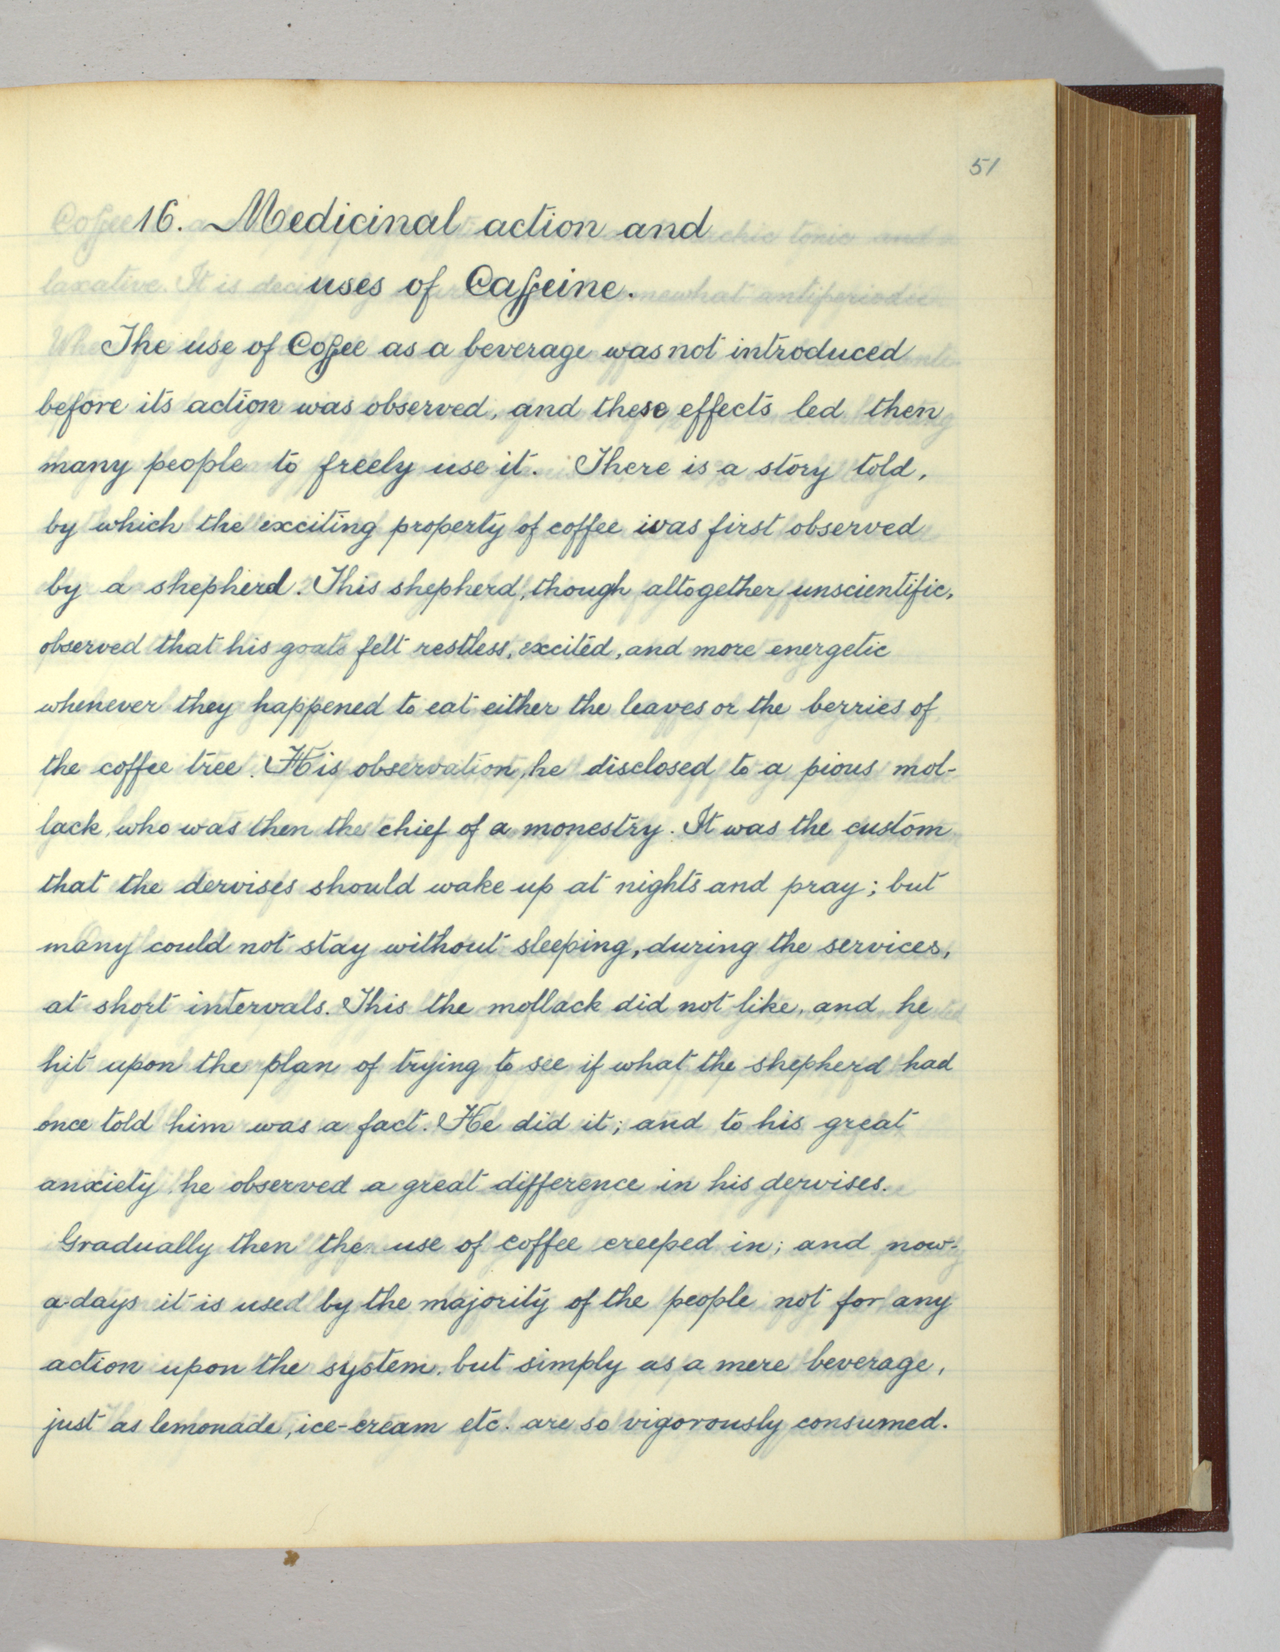 51
16. Medicinal action and
uses of Caffeine.
The use of Coffee as a beverage was not introduced
before its action was observed, and these effects led then
many people to freely use it. There is a story told,
by which the exciting property of coffee was first observed
by a shepherd. This shepherd, though altogether unscientific,
observed that his goats felt restless, excited, and more energetic
whenever they happened to eat either the leaves or the berries of
the coffee tree. His observation, he disclosed to a pious mol-
lack, who was then the chief of a monestry. It was the custom
that the dervises should wake up at nights and pray; but
many could not stay without sleeping, during the services,
at short intervals. This the mollack did not like, and he
hit upon the plan of trying to see if what the shepherd had
once told him was a fact. He did it; and to his great
anxiety he observed a great difference in his dervises.
Gradually then the use of coffee creeped in; and now-
a-days it is used by the majority of the people not for any
action upon the system, but simply as a mere beverage,
just as lemonade, ice-cream etc. are so vigorously consumed.